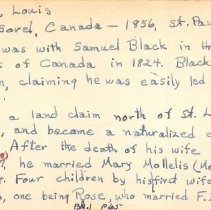 , Louis
Sorel, Canada — 1856, St. Pau
was with Samuel Black in th
s of Canada in 1824. Black
n, claiming he was easily led
a land claim north of St. L
, and became a naturalized c
After the death of his wife
, he married Mary Mollelis (
. Four children by his first wife
, one being Rose, who married F.
Bk.1 P65